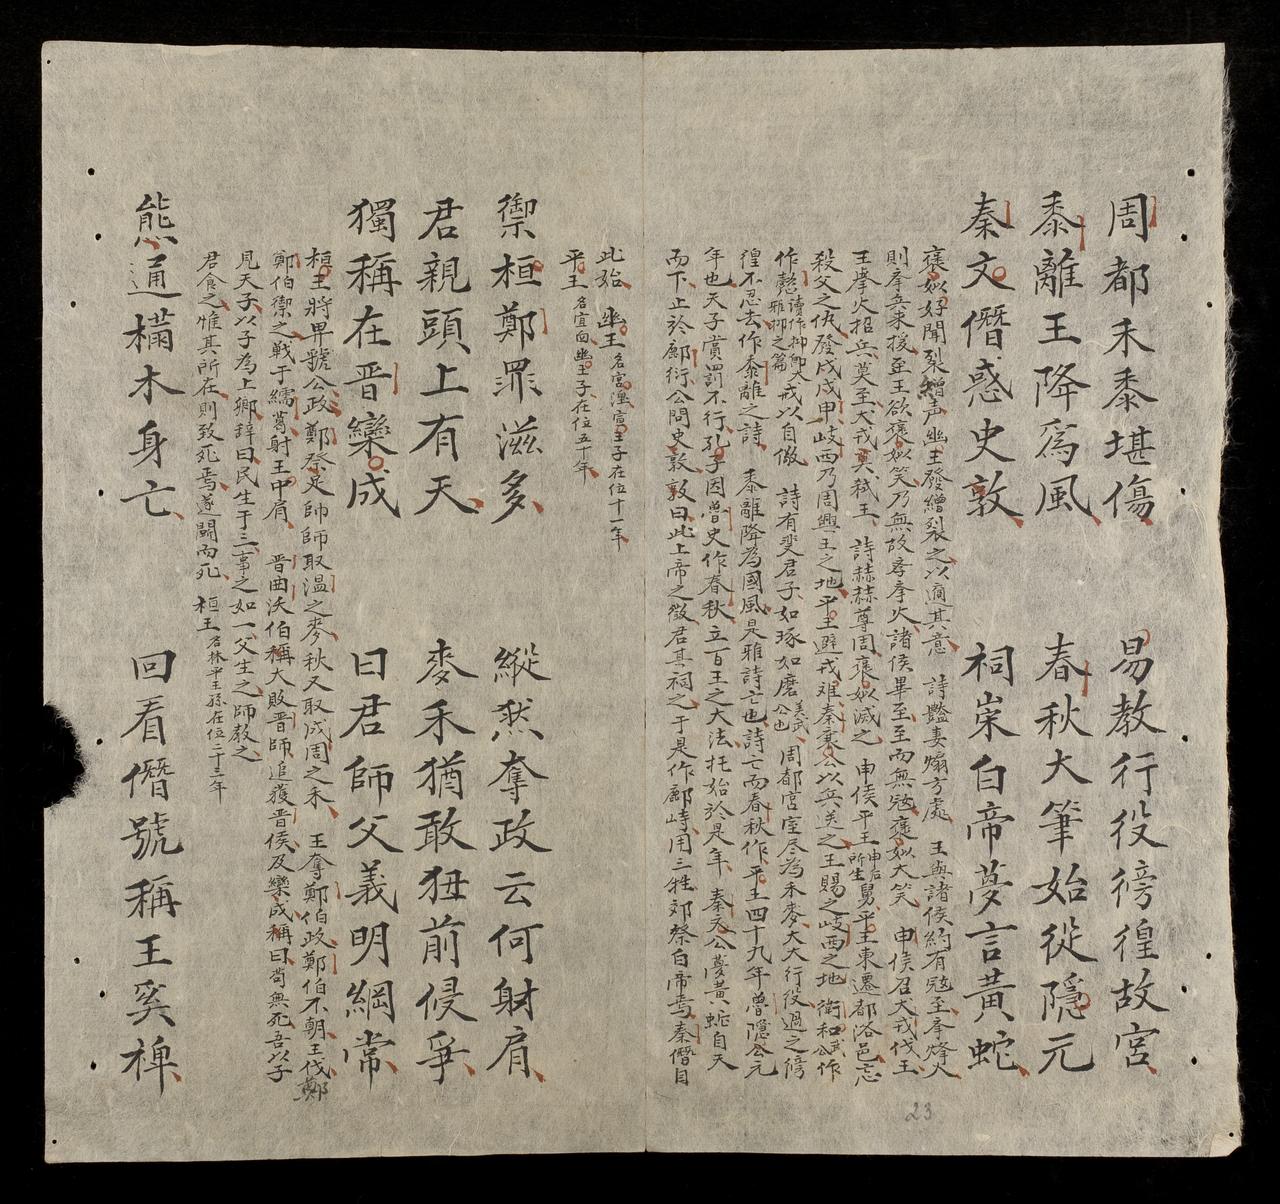 周都禾黍堪傷　易教行役徬徨故宮
黍離王降爲風　春秋大筆始從隱元
秦文僭惑史敦　祠崇白帝夢言黃蛇
褒姒好聞裂繒声幽王發繒裂之以適其意　詩豔妻煽方處　王與諸侯約有寇至㪯烽火
則㪯兵來援至王欲褒姒笑乃無故㪯㷭火諸侯畢至至而無寇褒姒大笑　申侯召犬戎伐王
王㪯火招兵莫至犬戎弒王　詩赫赫尊周褒姒滅之　申侯平王申后所生舅平王東遷都洛邑忘
殺父之仇發戍戍申岐西乃周興王之地平王避戎难秦襄公以兵送之王賜之岐西之地　衛和武公作
作懿讀作抑卽大雅抑之篇戒以自儆　詩有斐君子如琢如磨美武公也　周都宮室尽為禾麥大夫行役過之徬
徨不忍去作黍離之詩　黍離降為國風是雅詩亡也詩亡而春秋作平王四十九年魯隱公元
年也天子賞罰不行孔子因魯史作春秋立百王之大法托始於是年　秦文公夢黃蛇自天
而下止於鄜衍公問史敦敦曰此上帝之徵君其祠之于是作鄜畤用三牲郊祭白帝焉秦僭自
此始　幽王名宮湼宣王子在位十一年
平王名宜臼幽王子在位五十年
禦桓鄭罪滋多　縱然奪政云何射肩
君親頭上有天　麥禾猶敢狃前侵爭
獨稱在晋欒成　曰君師父義明綱常
桓王將畀虢公政鄭祭足帥師取温之麥秋又取成周之禾　王奪鄭伯政鄭伯不朝王伐鄭
鄭伯禦之戰于繻葛射王中肩　晋曲沃伯稱大敗晋師追獲晋侯及欒成稱曰苟無死吾以子
見天子以子為上卿辞曰民生于三事之如一父生之師教之
君食之惟其所在則致死焉遂鬪而死　桓王名林平王孫在位二十三年
熊通樠木身亡　回看僭號稱王奚裨
23